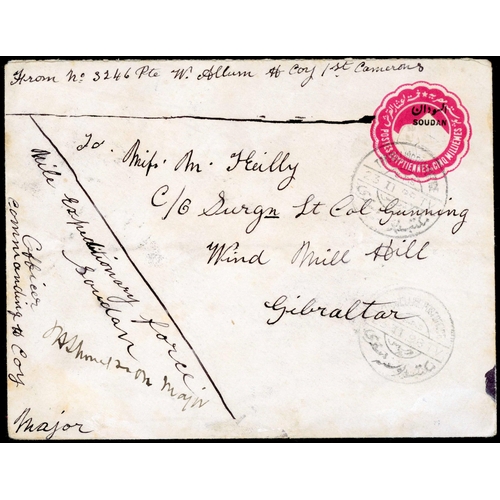 From No 3246 Pte W. Allum H Coy 1st Camerons
السودان
SOUDAN
POSTES EGYPTIENNES CINQ MILLIEMES
To.
Miss M. Heilly
C/o Surgn Lt Col Gunning
Wind Mill Hill
Gibraltar
Nile Expeditionary Force
Soudan
Major
Officer
commanding H Coy
Major